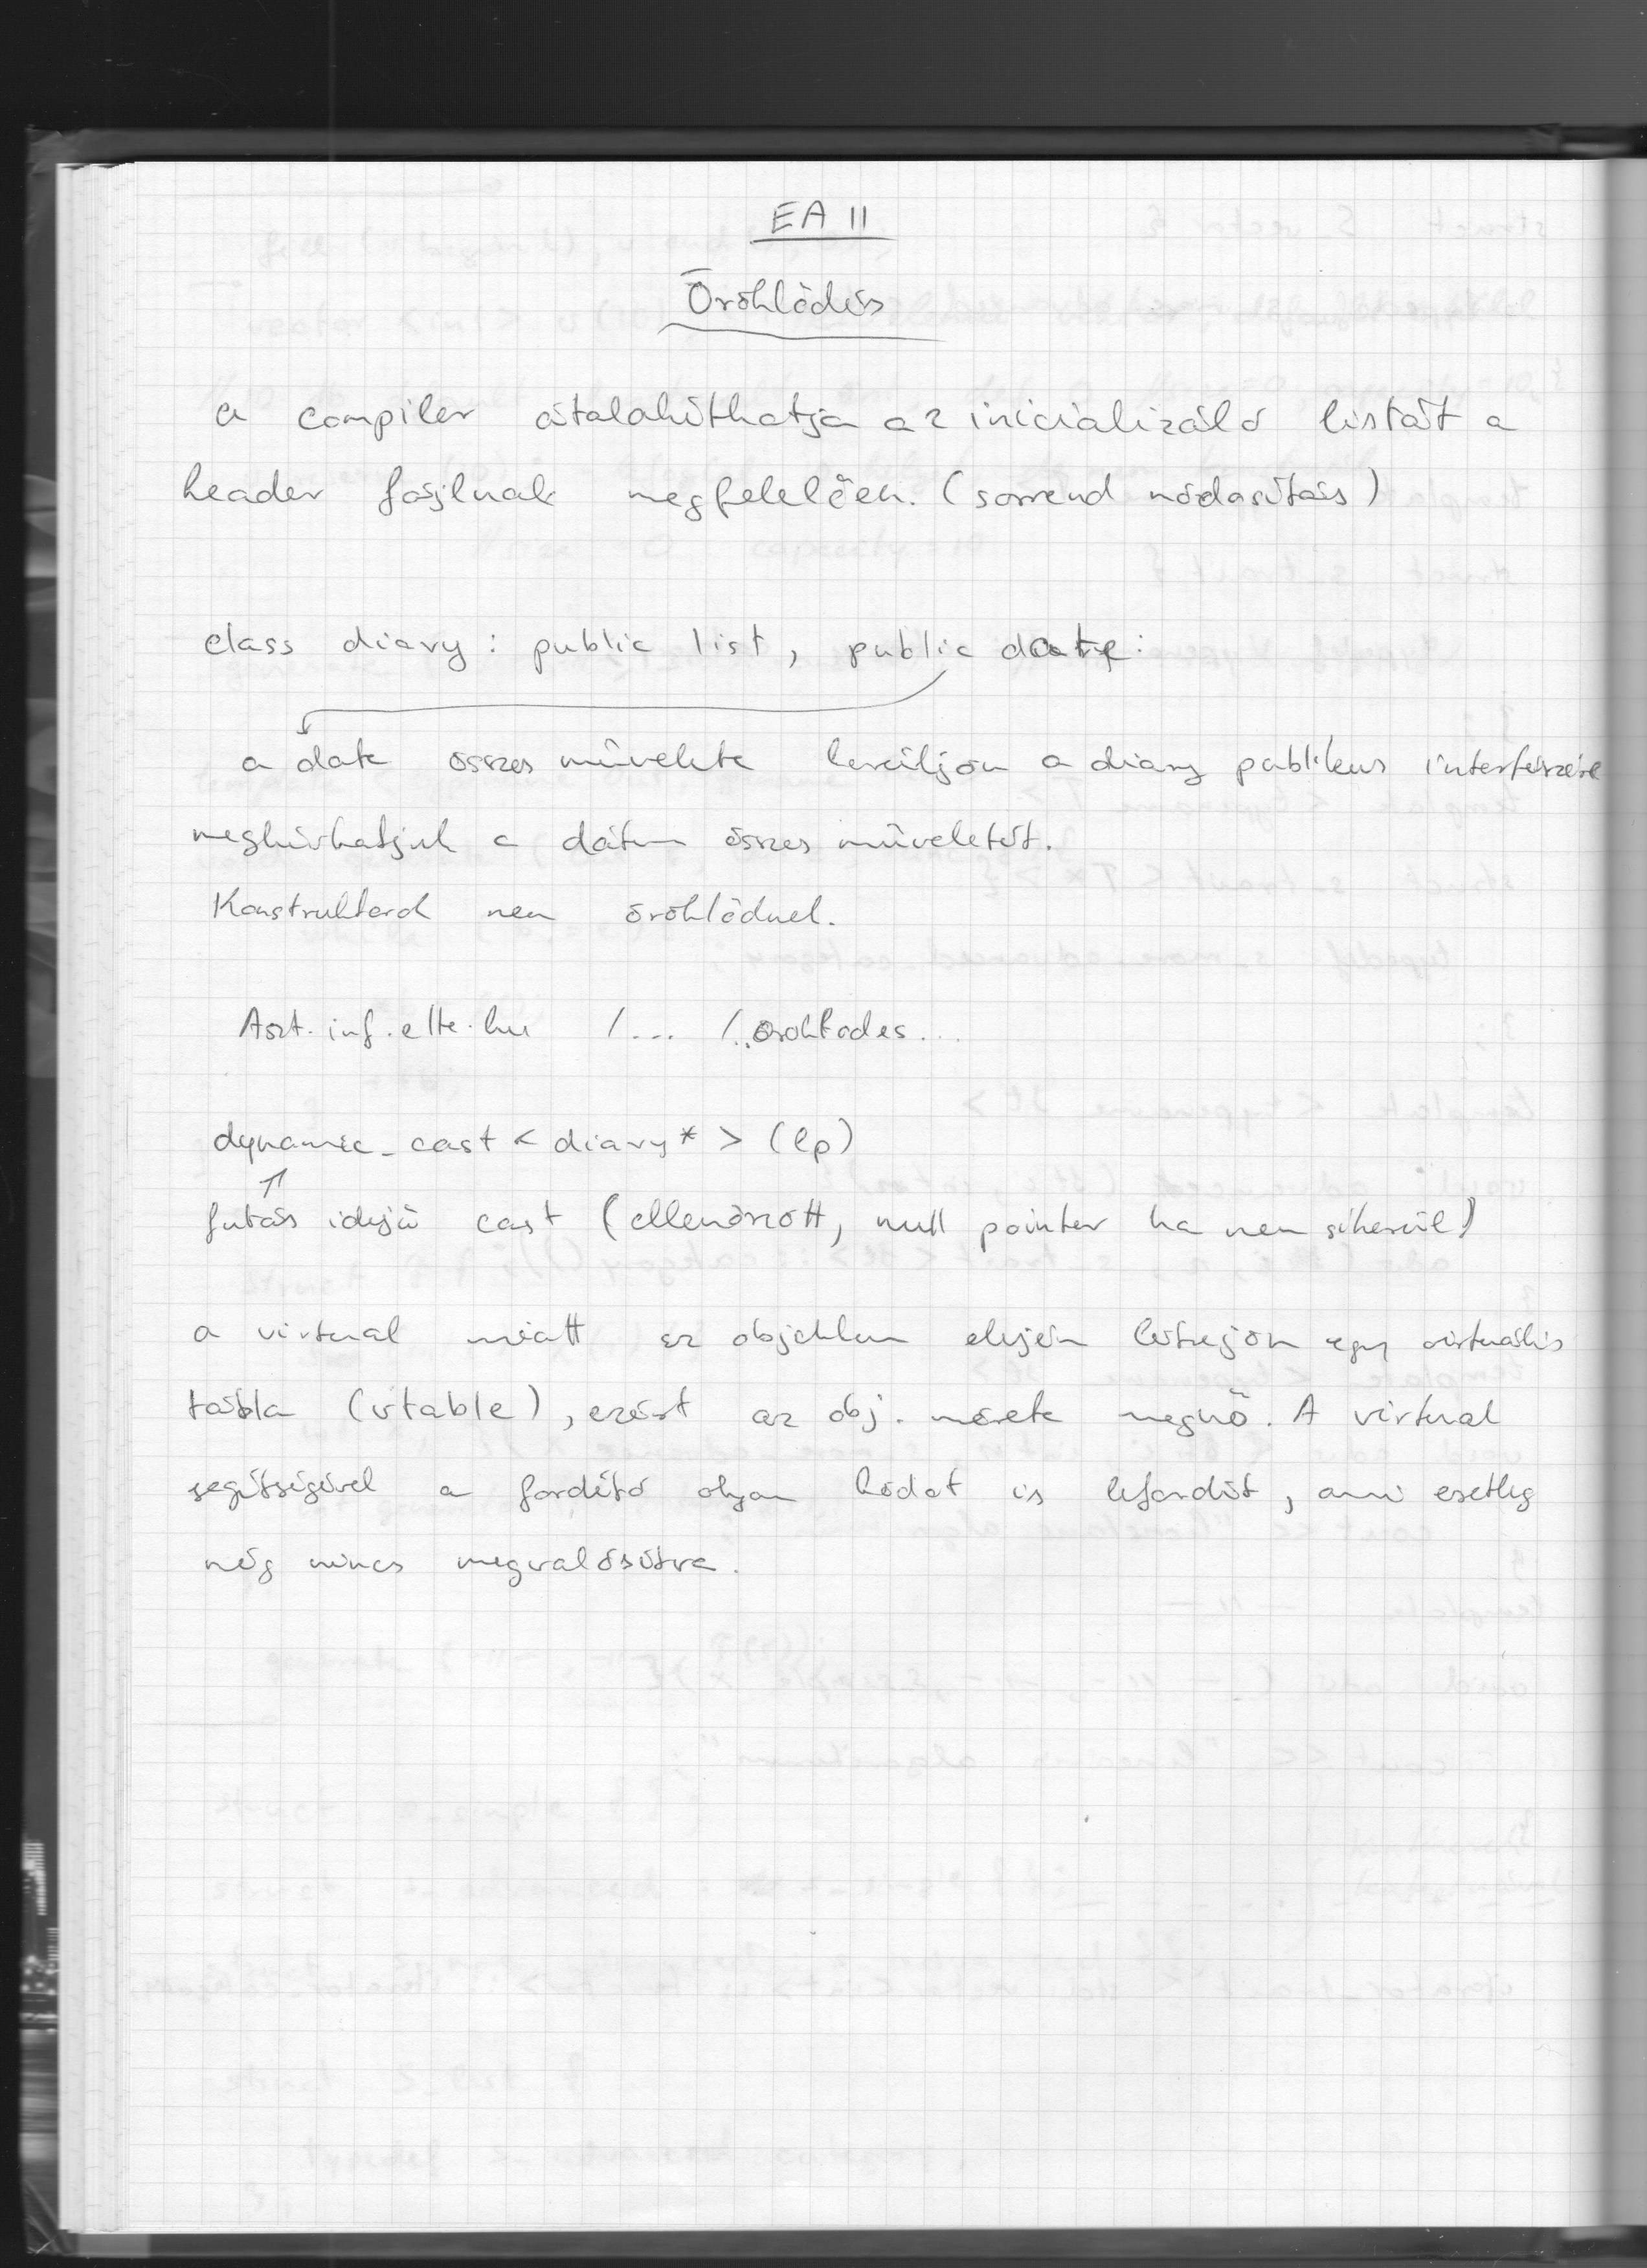 EA 11
Öröklődés
a compiler átalakíthatja az inicializáló listát a
header fájlnak megfelelően. (sorrend módosítás)
class diary : public list, public date :
a date összes művelete kerüljön a diary publikus interfészére
meghívhatjuk a dátum összes műveletét.
Konstruktorok nem öröklődnek.
Aszt.inf.elte.hu /... /..oroklodes...
dynamic_cast < diary* > (lp)
futás idejű cast (ellenőrzött, null pointer ha nem sikerül)
a virtual miatt az objektum elején létrejön egy virtuális
tábla (vtable), ezért az obj. mérete megnő. A virtual
segítségével a fordító olyan kódot is lefordít, ami esetleg
még nincs megvalósítva.